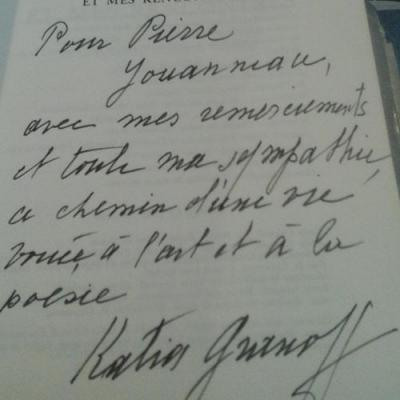 ET MES RENCONTRES
Pour Pierre
Youanneau,
avec mes remerciements
et toute ma sympathie,
ce chemin d'une vie
vouée à l'art et à la
poésie
Katia Granoff